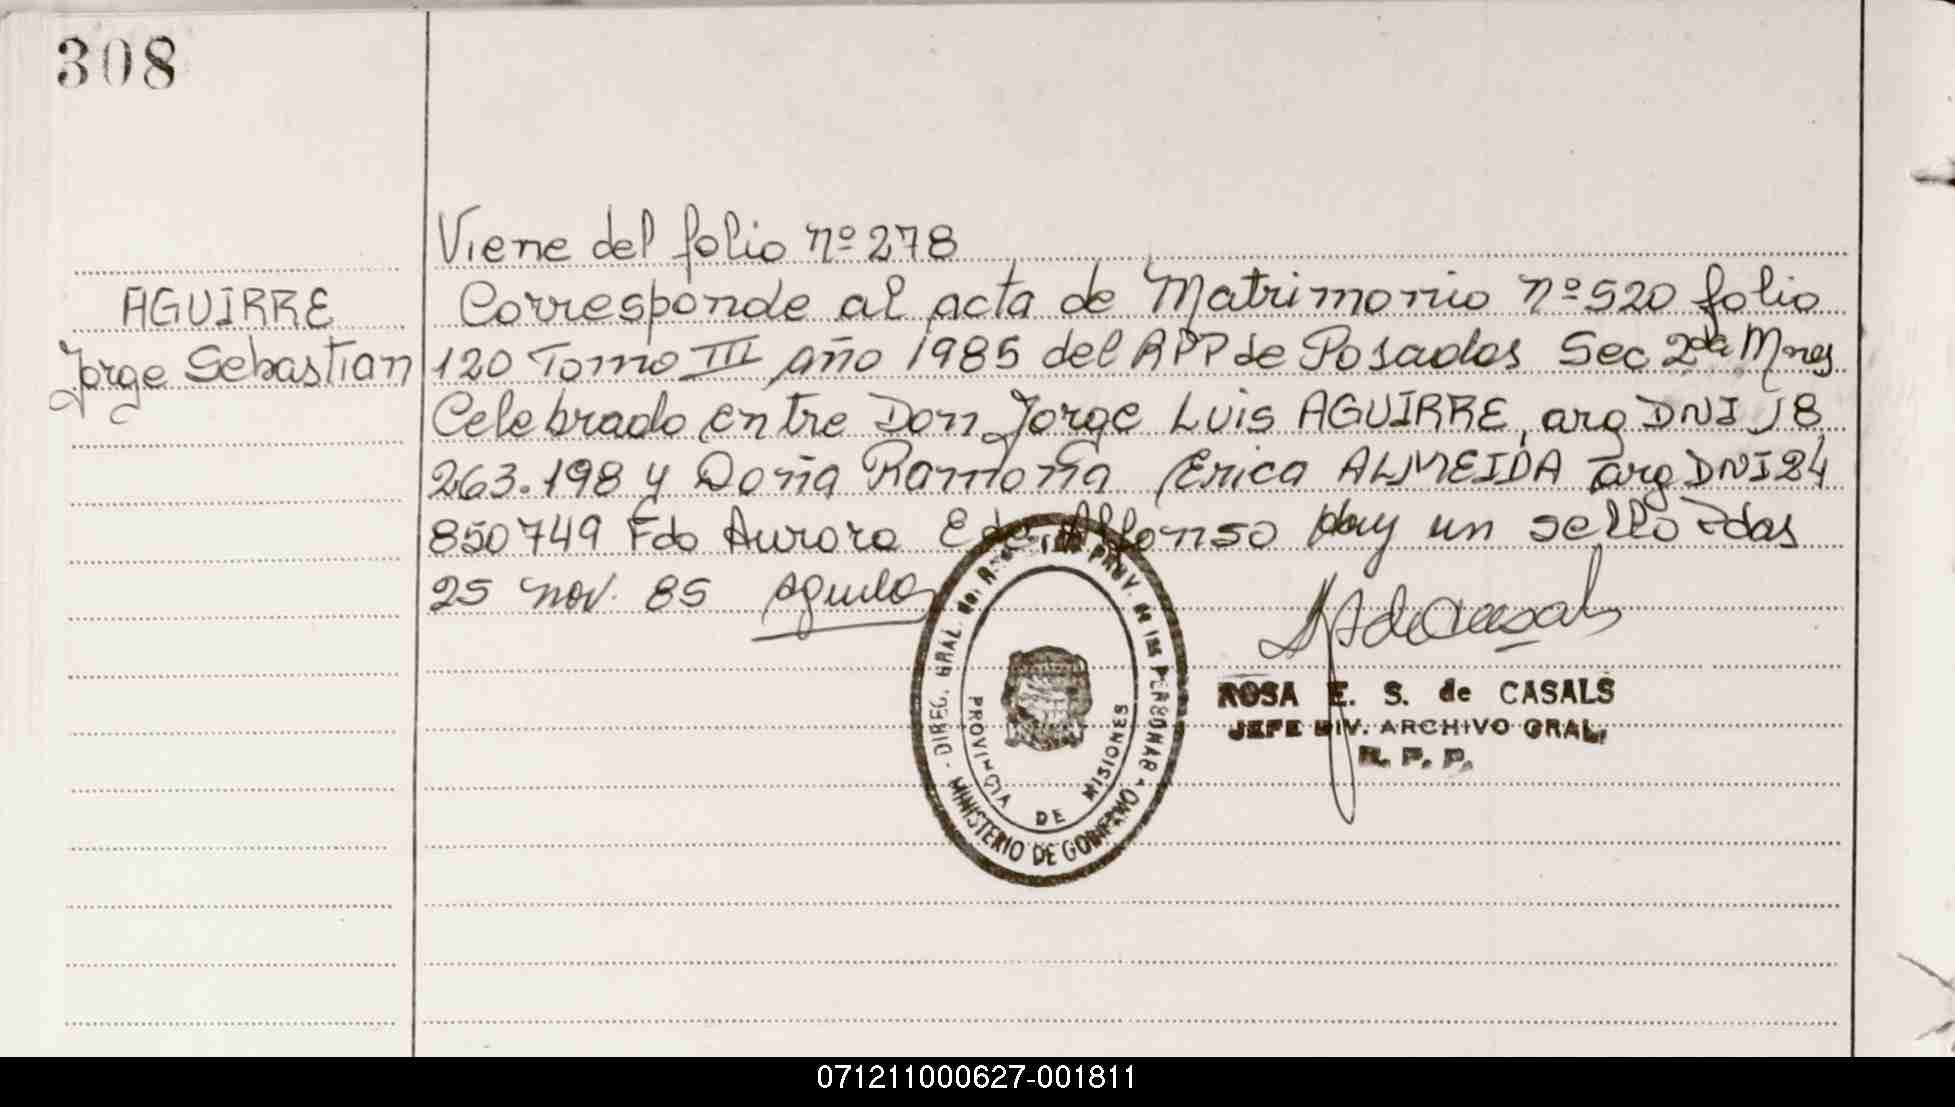 308
Viene del folio nº 278
AGUIRRE
Jorge Sebastian
Corresponde al acta de Matrimonio nº 520 folio
120 Tomo III año 1985 del RPP de Posadas Sec 2da Mnes
Celebrado entre Don Jorge Luis AGUIRRE, arg DNI 18
263.198 y Doña Ramona Erica ALMEIDA arg DNI 24
850749 Fdo Aurora E de Alfonso Hay un sello Pdas
25 nov. 85
DIREC. GRAL. del PROV. de las PERSONAS
MINISTERIO DE GOBIERNO
PROVINCIA DE MISIONES
ROSA E. S. de CASALS
JEFE DIV. ARCHIVO GRAL.
R. P. P.
071211000627-001811